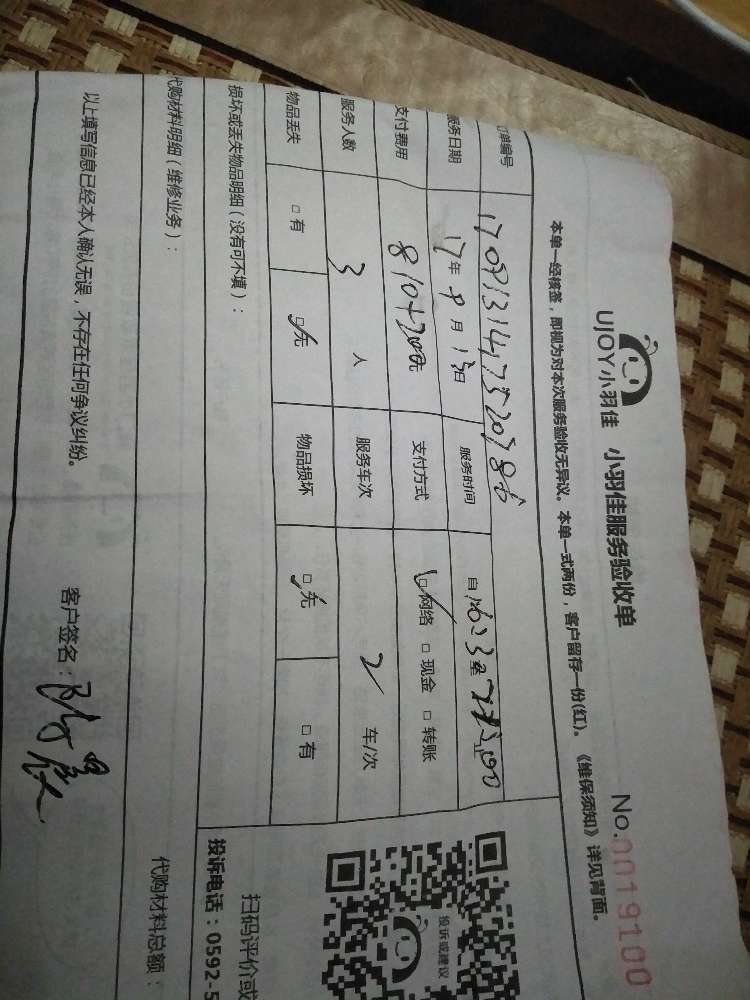 UJOY小羽佳 小羽佳服务验收单 No.0019100
本单一经核签，即视为对本次服务验收无异议。本单一式两份，客户留存一份(红)。《维保须知》详见背面。
订单编号
服务日期 17年9月13日 服务时间 自
支付费用 支付方式 □网络 □现金 □转账
服务人数 3人 服务车次 2车/次
物品丢失 □有 □无 物品损坏 □无 □有
损坏或丢失物品明细（没有可不填）：
代购材料明细（维修业务）： 代购材料总额：
以上填写信息已经本人确认无误，不存在任何争议纠纷。
客户签名：
投诉或建议
扫码评价或
投诉电话：0592-5